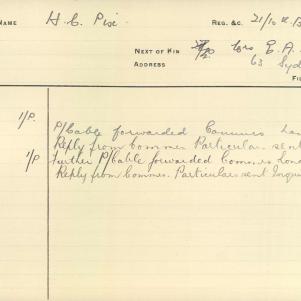 NAME H. C. Pixi REG. &C. 21/10th B
NEXT OF KIN Mrs E. A.
ADDRESS 63 Syd
FI
1/P. P/Cable forwarded Commrs Lon
Reply from Commrs Particulars sent
1/P Further P/Cable forwarded Commrs Lond
Reply from Commrs. Particulars sent Inqui